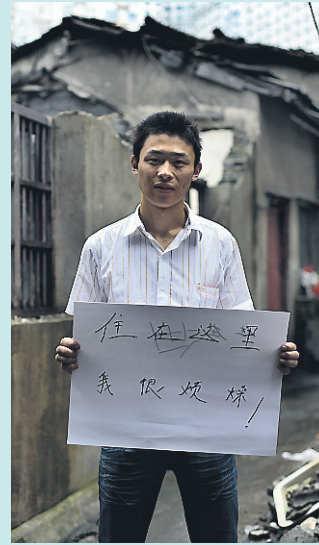 住在这里
我很烦燥!